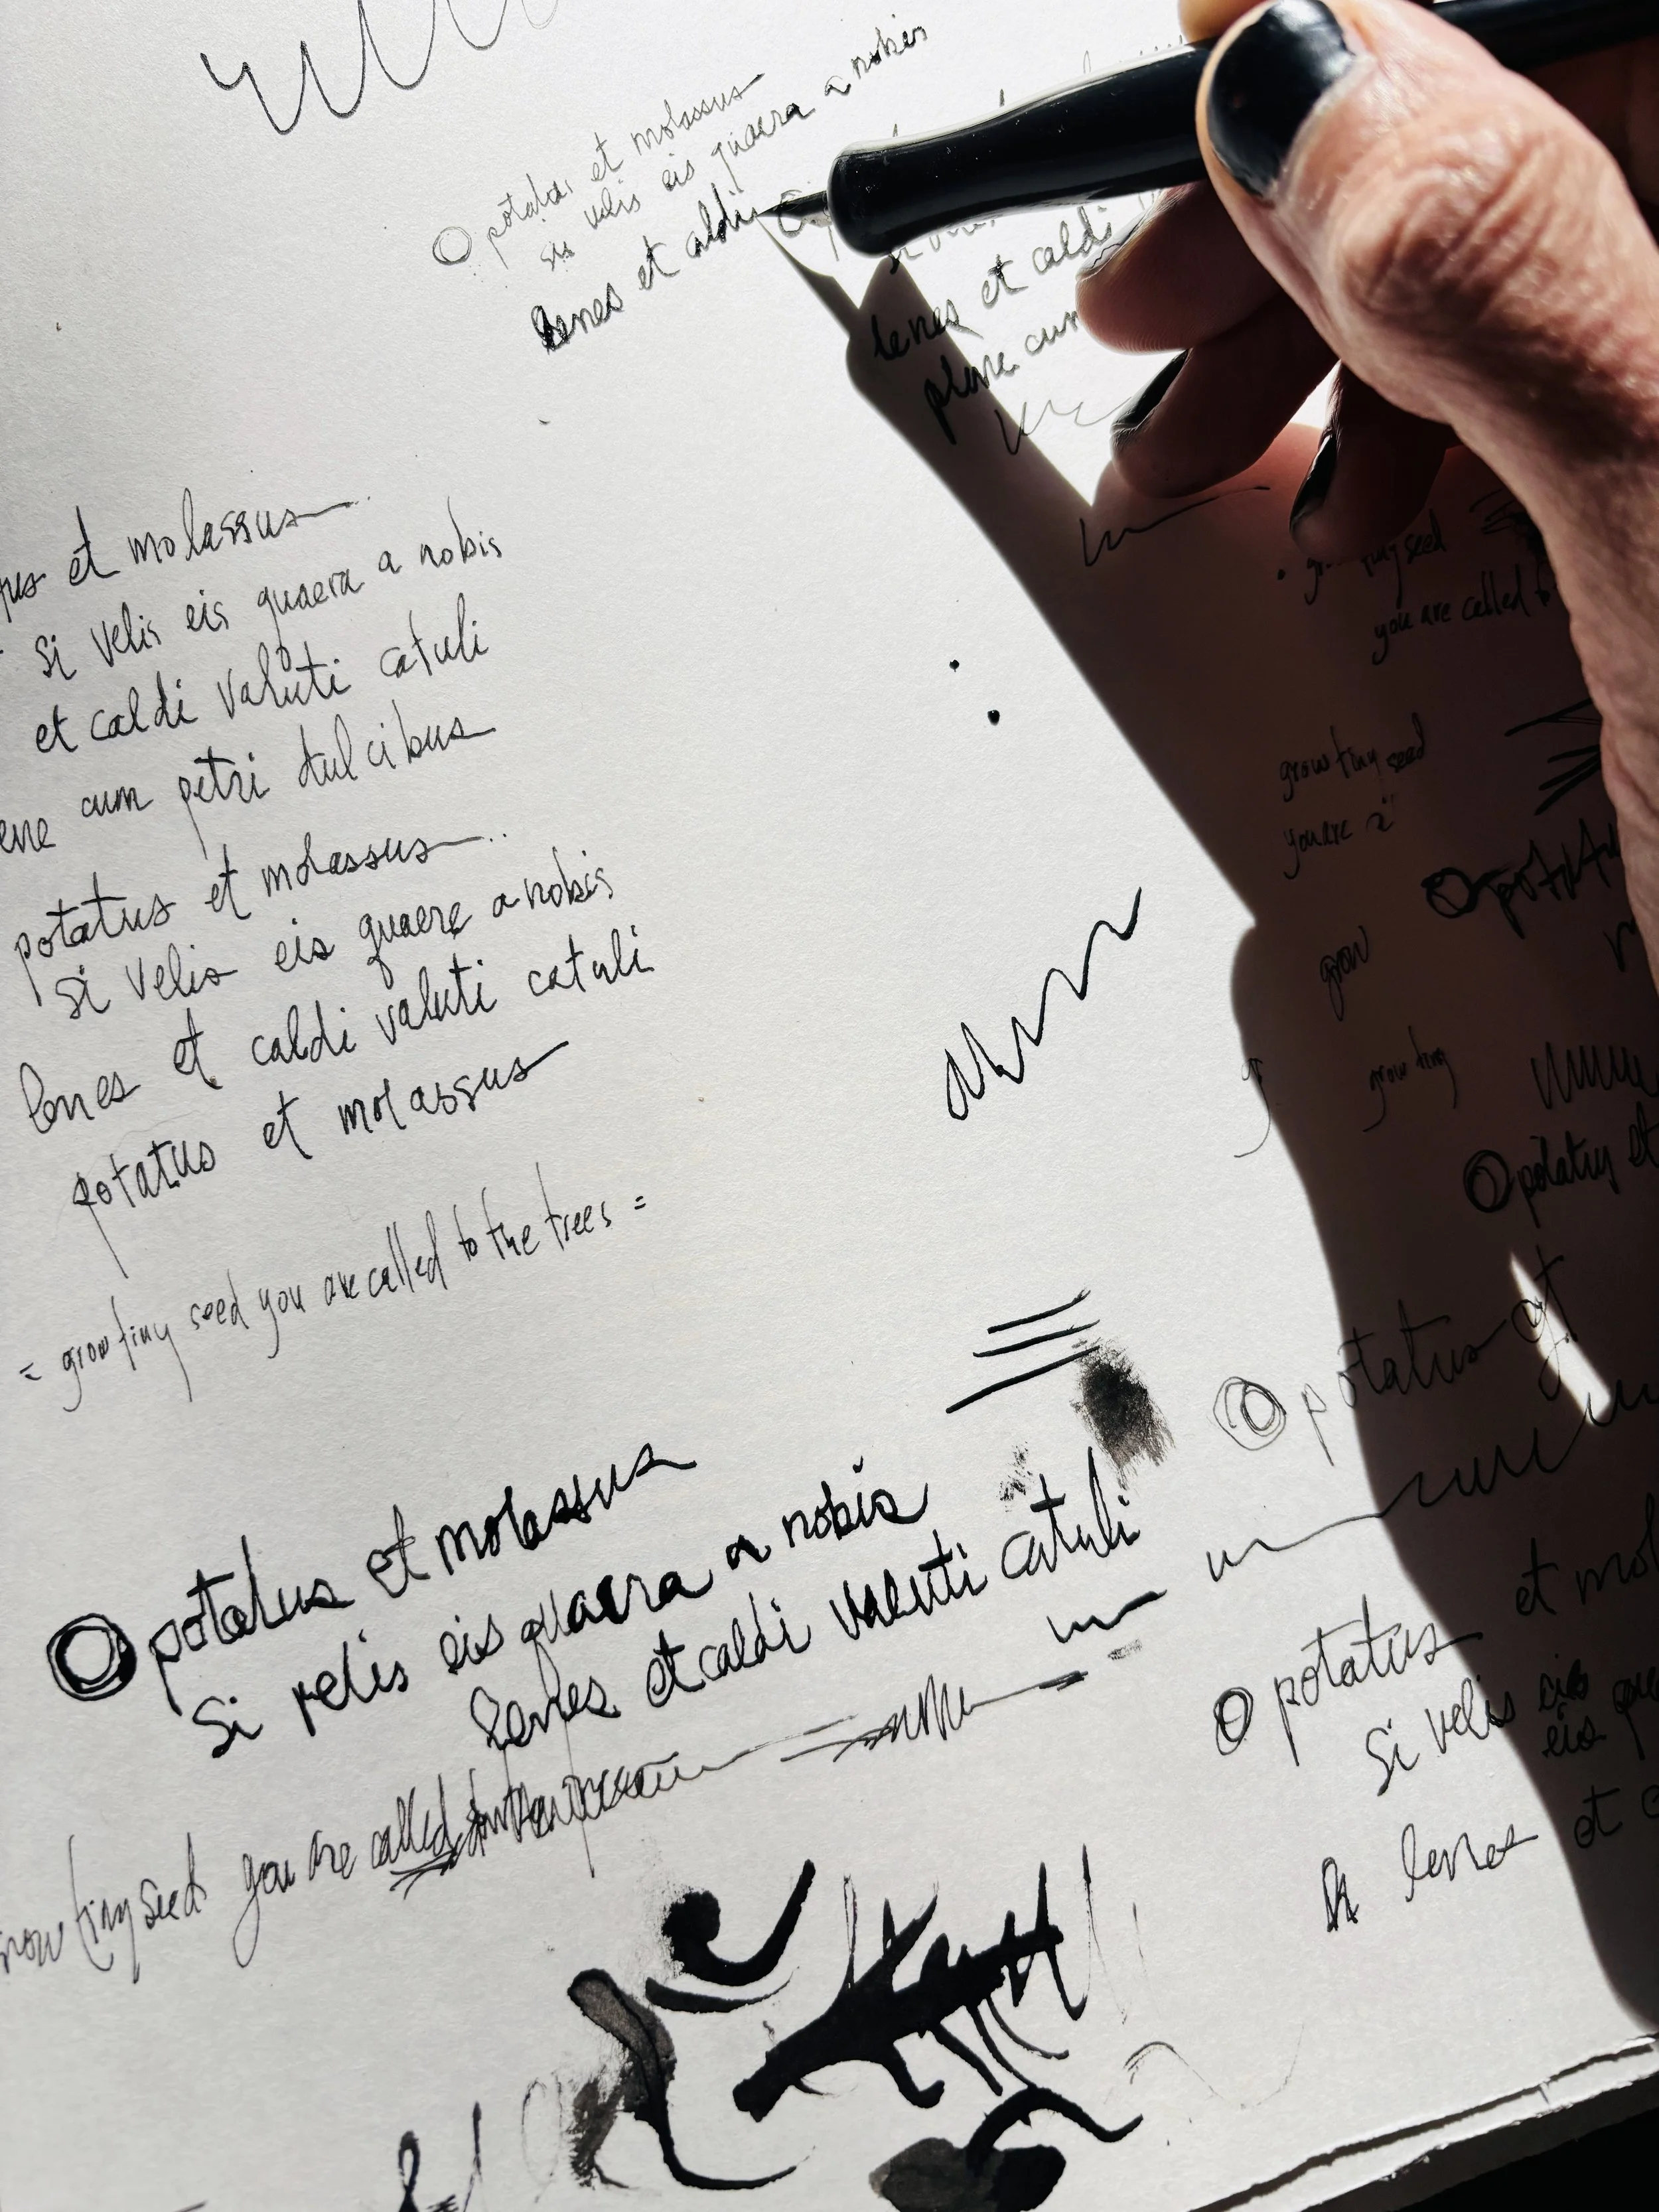 O potatus et molassus
si velis eis quaera a nobis
lenes et caldi
lenes et caldi
plene cum
et molassus
si velis eis quaera a nobis
et caldi valuti catuli
cum petri dulcibus
potatus et molassus
si velis eis quaere a nobis
lenes et caldi valuti catuli
potatus et molassus
= grow tiny seed you are called to the trees =
O potatus et molassus
si velis eis quaera a nobis
lenes et caldi valuti catuli
grow tiny seed you are called
seed
you are called
grow tiny seed
you are
grow
grow tiny
O potatus et
O potatus et
O potatus et
si velis eis
eis
lenes et